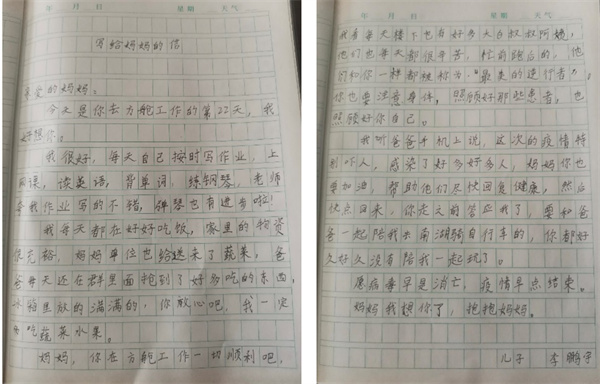 年 月 日 星期 天气
写给妈妈的信
亲爱的妈妈:
今天是你去方舱工作的第22天,我
好想你。
我很好,每天自己按时写作业,上
网课,读英语,背单词,练钢琴,老师
夸我作业写的不错,弹琴也有进步啦!
我每天都在好好吃饭,家里的物资
很充裕,妈妈单位也给送来了蔬菜,爸
爸每天还在群里面抢到了好多吃的东西,
冰箱里放的满满的,你放心吧,我一定
多吃蔬菜水果。
妈妈,你在方舱工作一切顺利吧,
年 月 日 星期 天气
我看每天楼下也有好多大白叔叔阿姨,
他们也每天都很辛苦,忙前跑后的,他
们和你一样都被称为"最美的逆行者",
你也要注意身体,照顾好那些患者,也
照顾好你自己。
我听爸爸手机上说,这次的疫情特
别吓人,感染了好多好多人,妈妈你也
要加油,帮助他们尽快回复健康,然后
快点回来,你走之前答应我了,要和爸
爸一起陪我去南湖骑自行车的,你都好
久好久没有陪我一起玩了。
愿病毒早是消亡,疫情早点结束。
妈妈我想你了,抱抱妈妈。
儿子 李鹏宇